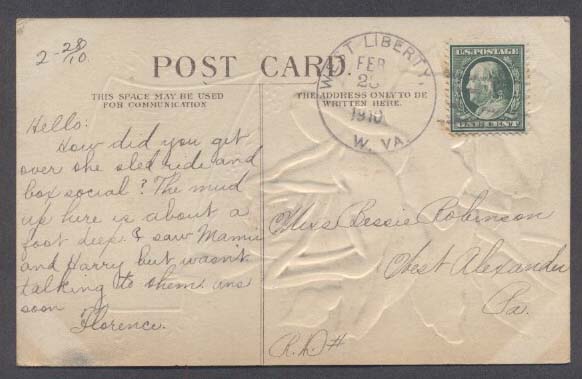 2-28/10
POST CARD.
THIS SPACE MAY BE USED
FOR COMMUNICATION
THE ADDRESS ONLY TO BE
WRITTEN HERE.
WEST LIBERTY
FEB
28
1910
W. VA.
U.S. POSTAGE
ONE CENT
Hello:
How did you get
over the sled ride and
box social? The mud
up here is about a
foot deep. I saw Mamie
and Harry but wasn't
talking to them. ans
soon
Florence.
Miss Bessie Robinson
West Alexander
Pa.
R.D#